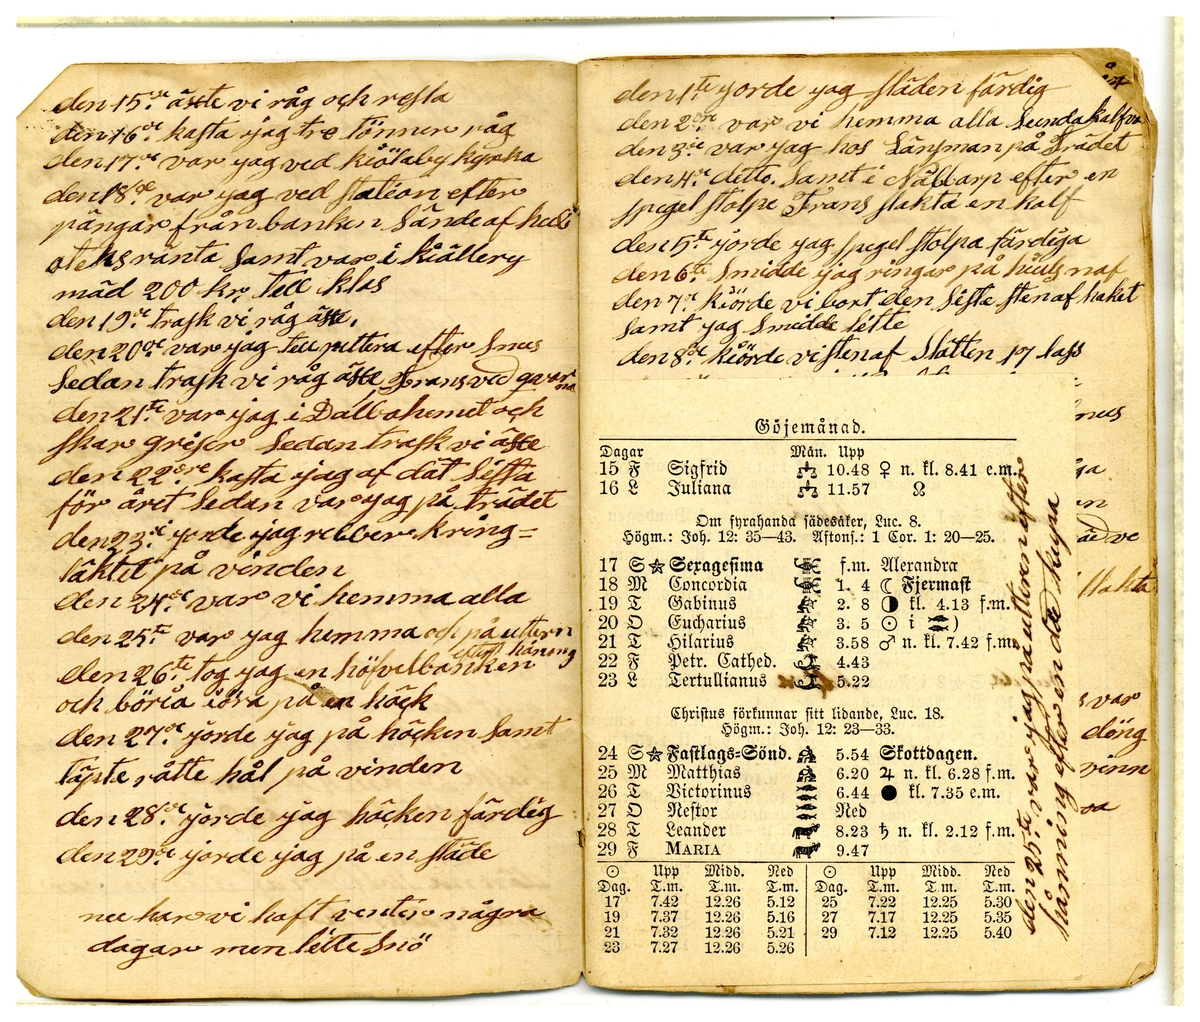 den 15de äste vi råg och resla
den 16de kasta jag tre tönner råg
den 17de var jag ved kiölaby kyrka
den 18de var jag ved station efter
pängar från banken sände af hub
oteksränta samt var i kiällery
mäd 200 kr. Till klas
den 19de trask vi råg äste.
den 20de var jag till puttera efter snus
sedan trask vi råg äste Frans ved qvar
na
den 21te var jag i Dalbohemet och
skar griser sedan trask vi äste
den 22dre kasta jag af dät sista
för året sedan var jag på trädet
den 23di jorde jag rebber kring=
täktet på vinden
den 24de var vi hemma alla
den 25te var jag hemma och på uttern
efter häning
den 26te tog jag en höfvelbänken
och böria iöra på en häck
den 27de jorde jag på häcken samt
täpte råtte hål på vinden
den 28de jorde jag häcken färdig
den 29de jorde jag på en släde
nu har vi haft venter några
dagar men lette snö
den 1te jorde jag släden färdig
den 2dre var vi hemma alla Sunda kalfva
den 3de var jag hos Länsman på Trädet
den 4de ditto. Samt i Nåltarp efter en
spegel stolpe Frans slakta en kalf
den 5te jorde jag spegel stolpa färdiga
den 6te smidde jag ringar på hiuls naf
den 7de kiörde vi bort den siste sten af haket
samt jag smidde litte
den 8de kiörde vi sten af Slätten 17 lass
Göjemånad.
Dagar Mån. Upp
15 F Sigfrid 10.48 ♀ n. kl. 8.41 e.m.
16 L Juliana 11.57 ☊
Om fyrahanda sädesåker, Luc. 8.
Högm.: Joh. 12: 35—43. Aftons.: 1 Cor. 1: 20—25.
17 S ☆ Sexagesima f.m. Alexandra
18 M Concordia 1. 4 ☾ Fjermast
19 T Gabinus 2. 8 ◑ kl. 4.13 f.m.
20 O Eucharius 3. 5 ☉ i ♓)
21 T Hilarius 3.58 ♂ n. kl. 7.42 f.m.
22 F Petr. Cathed. 4.43
23 L Tertullianus 5.22
Christus förkunnar sitt lidande, Luc. 18.
Högm.: Joh. 12: 23—33.
24 S ☆ Fastlags=Sönd. 5.54 Skottdagen.
25 M Matthias 6.20 ♃ n. kl. 6.28 f.m.
26 T Victorinus 6.44 ● kl. 7.35 e.m.
27 O Nestor Ned
28 T Leander 8.23 ♄ n. kl. 2.12 f.m.
29 F MARIA 9.47
☉ Upp Midd. Ned ☉ Upp Midd. Ned
Dag. T.m. T.m. T.m. Dag. T.m. T.m. T.m.
17 7.42 12.26 5.12 25 7.22 12.25 5.30
19 7.37 12.26 5.16 27 7.17 12.25 5.35
21 7.32 12.26 5.21 29 7.12 12.25 5.40
23 7.27 12.26 5.26
den 25te var jag på uttern efter
hänning efter en död
snus
ve
slakta
var
döng
vinn